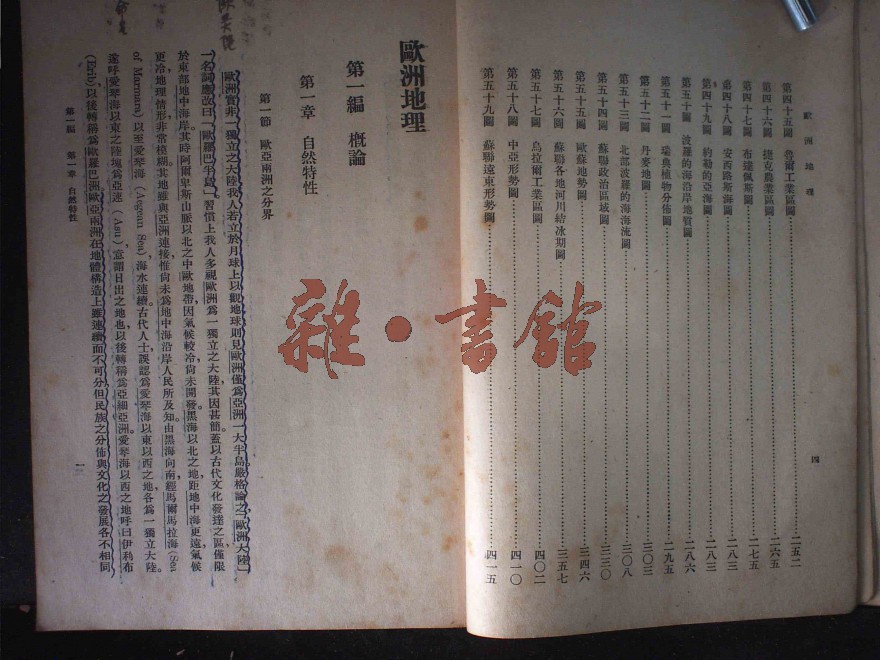 歐洲地理
四
第四十五圖 魯爾工業區圖 二五二
第四十六圖 捷克農業區圖 二六五
第四十七圖 布達佩斯圖 二七五
第四十八圖 安西路斯海圖 二八三
第四十九圖 約勒的亞海圖 二八三
第五十圖 波羅的海沿岸地質圖 二八六
第五十一圖 瑞典植物分佈圖 二九五
第五十二圖 丹麥地圖 三〇三
第五十三圖 北部波羅的海海流圖 三〇八
第五十四圖 蘇聯政治區域圖 三三〇
第五十五圖 歐蘇地勢圖 三四六
第五十六圖 蘇聯各地河川結冰期圖 三五七
第五十七圖 烏拉爾工業區圖 四〇二
第五十八圖 中亞形勢圖 四一〇
第五十九圖 蘇聯遠東形勢圖 四一五
歐洲地理
第一編 概論
第一章 自然特性
第一節 歐亞兩洲之分界
歐洲實非一獨立之大陸我人若立於月球上以觀地球則見歐洲僅爲亞洲一大半島嚴格論之「歐洲大陸」
一名詞應改曰「歐羅巴半島」。習慣上我人多視歐洲爲一獨立之大陸其因甚簡蓋以古代文化發達之區僅限
於東部地中海岸。其時阿爾卑斯山脈以北之中歐地帶因氣候較冷尙未開發。黑海以北之地距地中海更遠氣候
更冷地理情形非常模糊。其地雖與亞洲連接惟尙未爲地中海沿岸人民所及知。由黑海向南經馬爾馬拉海(Sea
of Marmara)以至愛琴海(Aegean Sea)海水連續古代人士誤認爲愛琴海以東以西之地各爲一獨立大陸。
遂呼愛琴海以東之陸塊爲亞速(Asu)意謂日出之地也以後轉稱爲亞細亞洲。愛琴海以西之地呼曰伊利布
(Erib)以後轉稱爲歐羅巴洲。歐亞兩洲在地體構造上雖連續而不可分但民族之分佈與文化之發展各不相同
第一編 第一章 自然特性
一
雜·書館